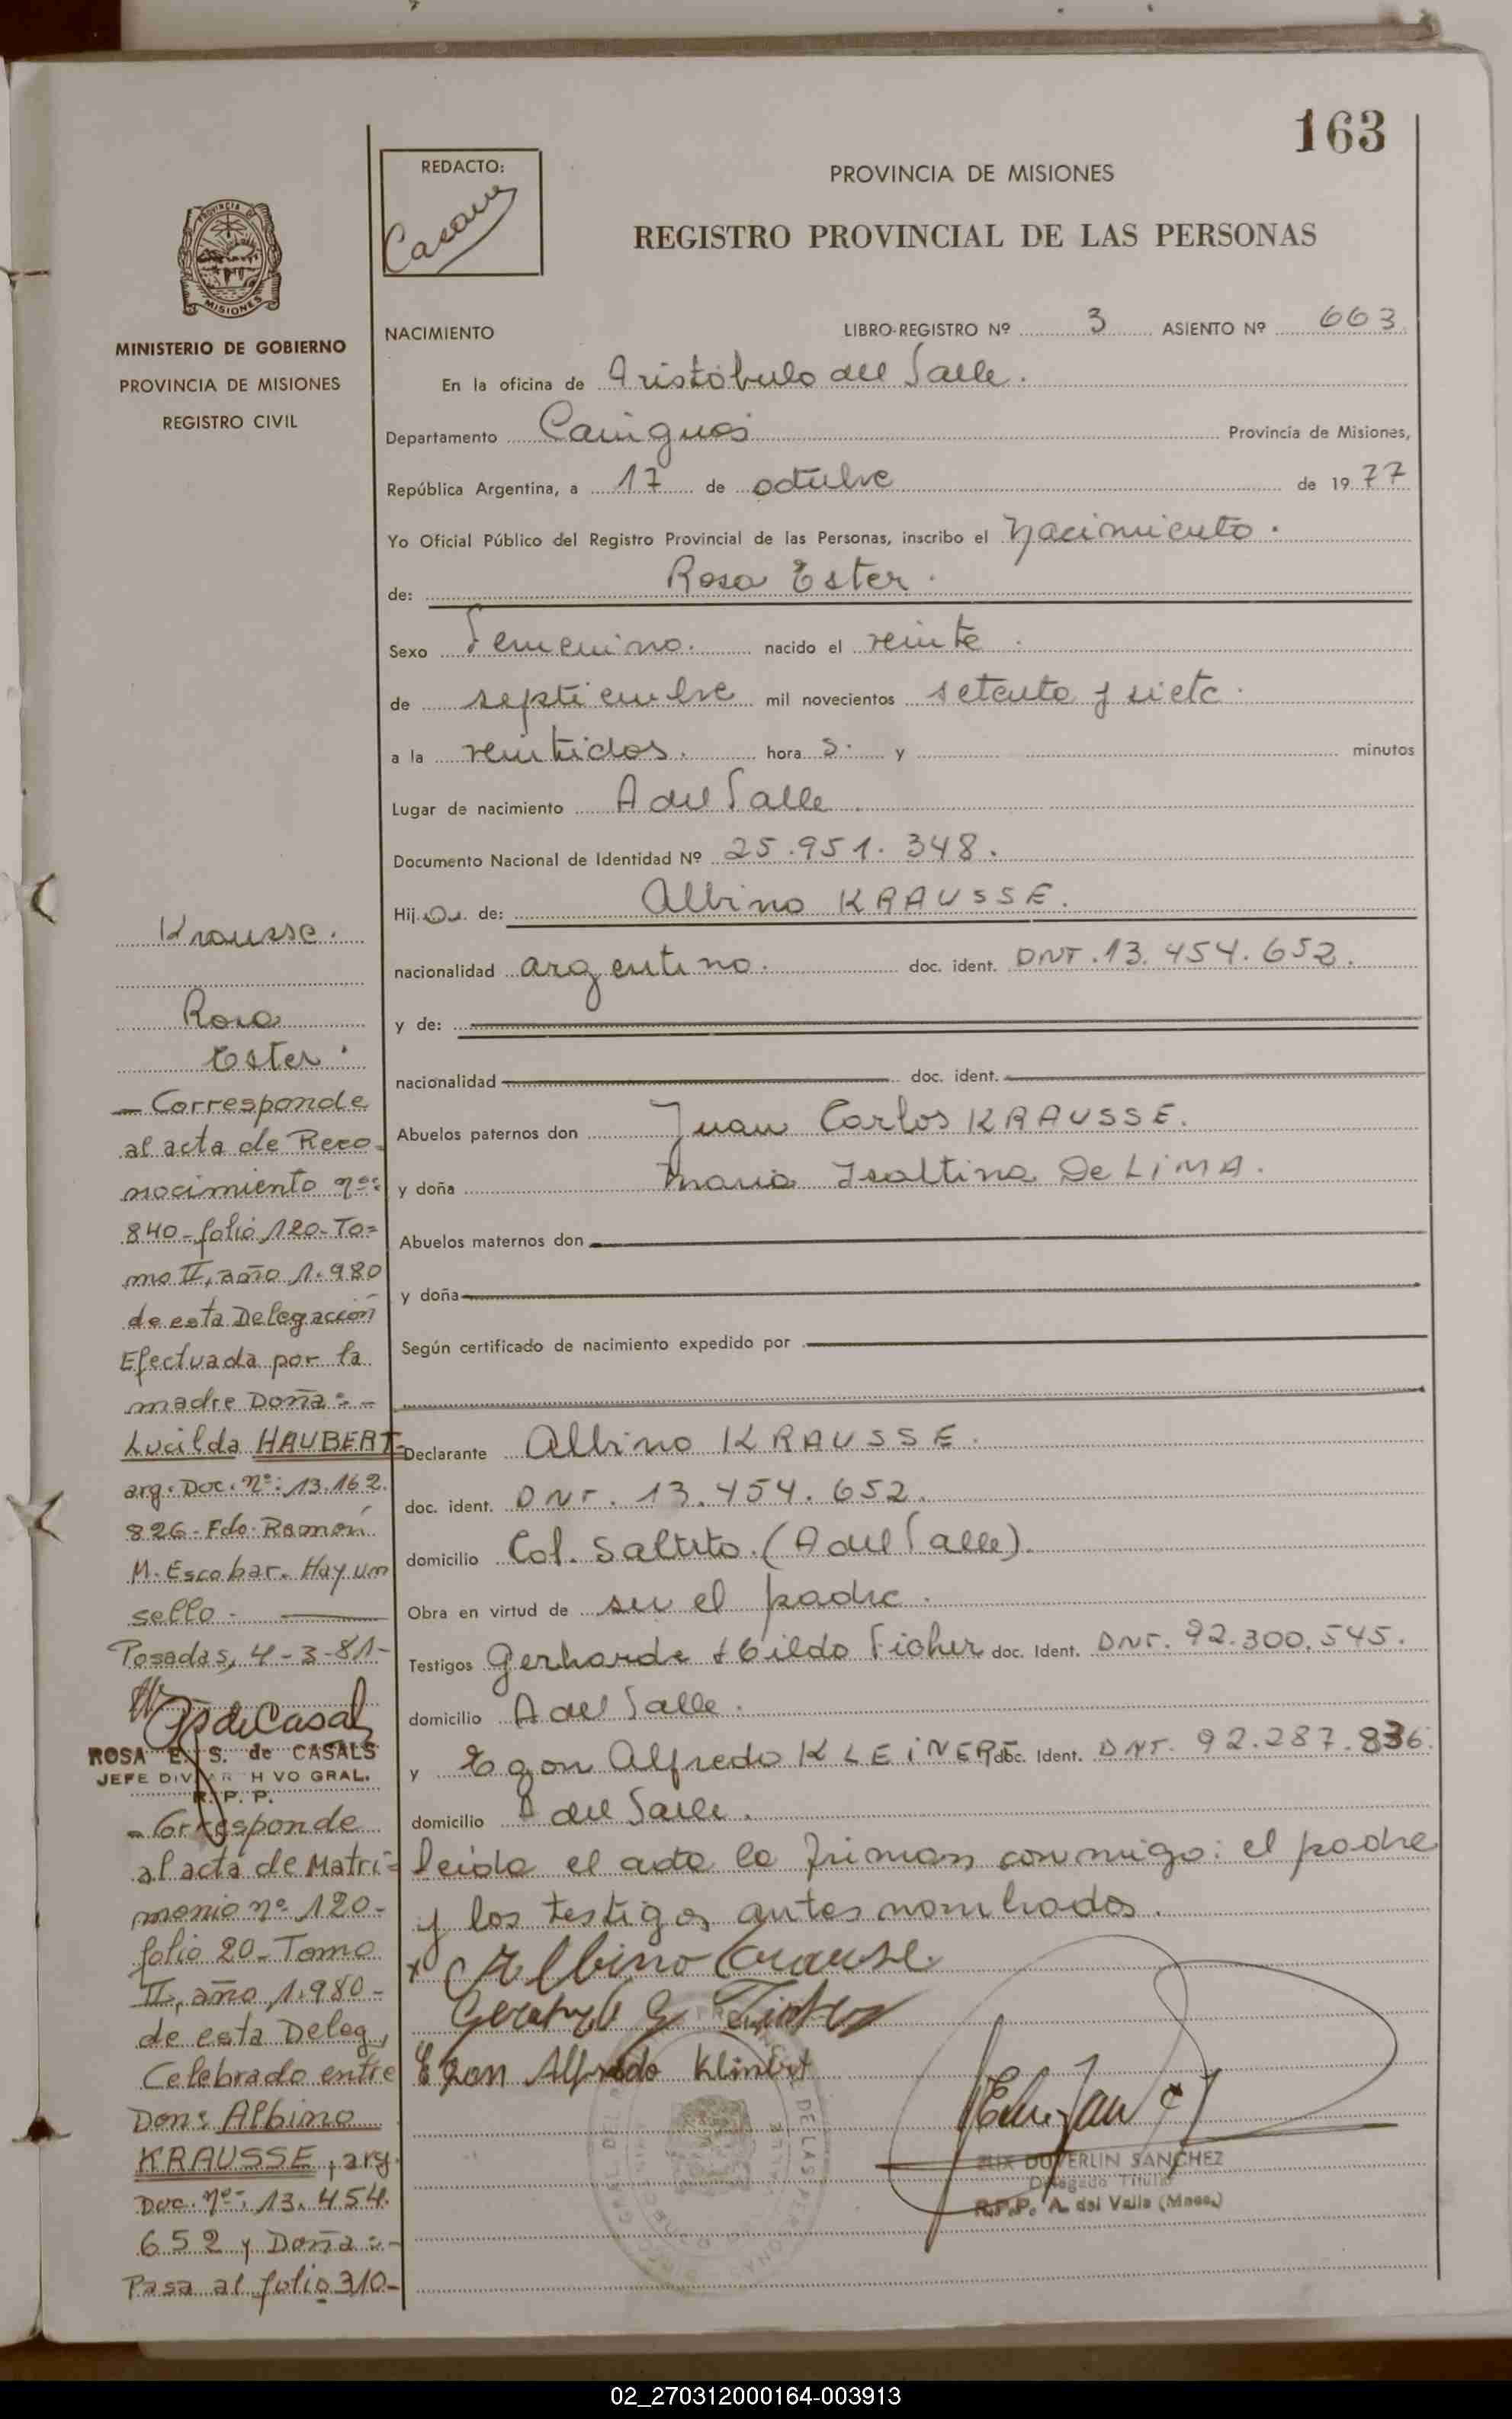 163
REDACTO:
PROVINCIA DE MISIONES
REGISTRO PROVINCIAL DE LAS PERSONAS
PROVINCIA DE
MISIONES
MINISTERIO DE GOBIERNO
PROVINCIA DE MISIONES
REGISTRO CIVIL
NACIMIENTO LIBRO-REGISTRO Nº 3 ASIENTO Nº 663
En la oficina de Aristóbulo del Valle.
Departamento Cainguás Provincia de Misiones,
República Argentina, a 17 de octubre de 1977
Yo Oficial Público del Registro Provincial de las Personas, inscribo el Nacimiento.
de: Rosa Ester.
Sexo Femenino. nacido el veinte.
de septiembre mil novecientos setenta y siete.
a la veintidos. hora s. y minutos
Lugar de nacimiento A del Valle
Documento Nacional de Identidad Nº 25.951.348.
Hija de: Albino KRAUSSE.
nacionalidad argentino. doc. ident. DNI.13.454.652.
y de:
nacionalidad doc. ident.
Abuelos paternos don Juan Carlos KRAUSSE.
y doña Maria Isaltina De LiMA.
Abuelos maternos don
y doña
Según certificado de nacimiento expedido por
Declarante Albino KRAUSSE.
doc. ident. DNI. 13.454.652.
domicilio Col. Saltito. (A del Valle).
Obra en virtud de ser el padre.
Testigos Gerharde Hildo Ficher doc. Ident. DNI. 92.300.545.
domicilio A del Valle.
y Egon Alfredo KLEiNERT doc. Ident. DNI. 92.287.836.
domicilio A del Valle.
Leida el acta la firman conmigo: el padre
y los testigos antes nombrados.
x Albino Crause
Egon Alfredo Klinert
DUVERLIN SANCHEZ
Delegado Titular
R.P.P. A. del Valle (Mnes.)
Krausse.
Rosa
Ester.
- Corresponde
al acta de Reco-
nocimiento nº:
840-folio 120-To=
mo II, año 1.980
de esta Delegación
Efectuada por la
madre Doña:-
Lucilda HAUBERT-
arg. Doc. nº: 13.162.
826-Fdo. Ramón
M. Escobar. Hay un
sello.-
Posadas, 4-3-81-
ROSA E. S. de CASALS
JEFE DIV. ARCHIVO GRAL.
R. P. P.
- Corresponde
al acta de Matri=
monio nº 120-
folio 20-Tomo
II, año 1.980-
de esta Deleg,
Celebrado entre
Don: Albino
KRAUSSE, arg.
Doc. nº: 13.454.
652 y Doña:-
Pasa al folio 310-
02_270312000164-003913